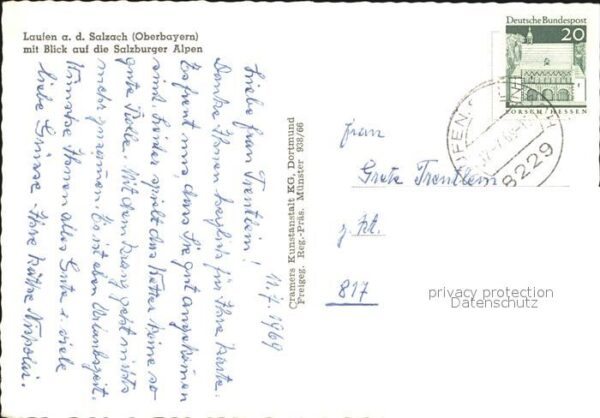 Laufen a. d. Salzach (Oberbayern)
mit Blick auf die Salzburger Alpen
11.7.1969
Liebe Frau Trentlein!
Danke Ihnen herzlich für Ihre Karte.
Es freut mich, dass Sie gut angekommen
sind. Leider spielt das Wetter keine so
gute Rolle. Mit dem Kranz geht nichts
mehr zusammen. Es ist eben Urlaubszeit.
Wünsche Ihnen alles Gute u. viele
liebe Grüsse Ihre Käthe
Cramers Kunstanstalt KG, Dortmund
Freigeg. Reg.-Präs. Münster 938/66
Deutsche Bundespost
20
LORSCH/HESSEN
8229
Frau
Grete Trentlein
z. Zt.
817
privacy protection
Datenschutz